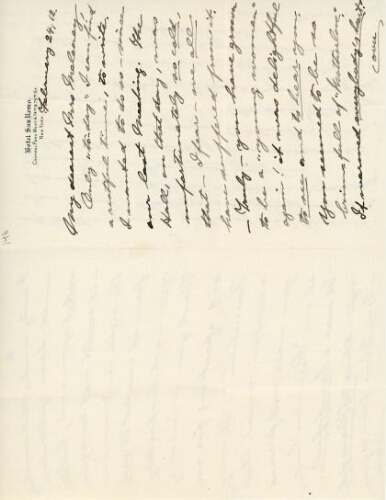 Hotel San Remo,
New York
February 24, 12.
My dearest Mrs
Only "to-day" I can find
a restful time, to write.
I wanted to do so - since
our last Meeting. The
Hall, on that day, was
unfortunately so cold,
that - I fear we all
have suffered from it.
- Truly - you have grown
to be a "young woman"
again! it was delightful
to see and to hear you.
You seemed to be so
brim full of
It warmed everybody's